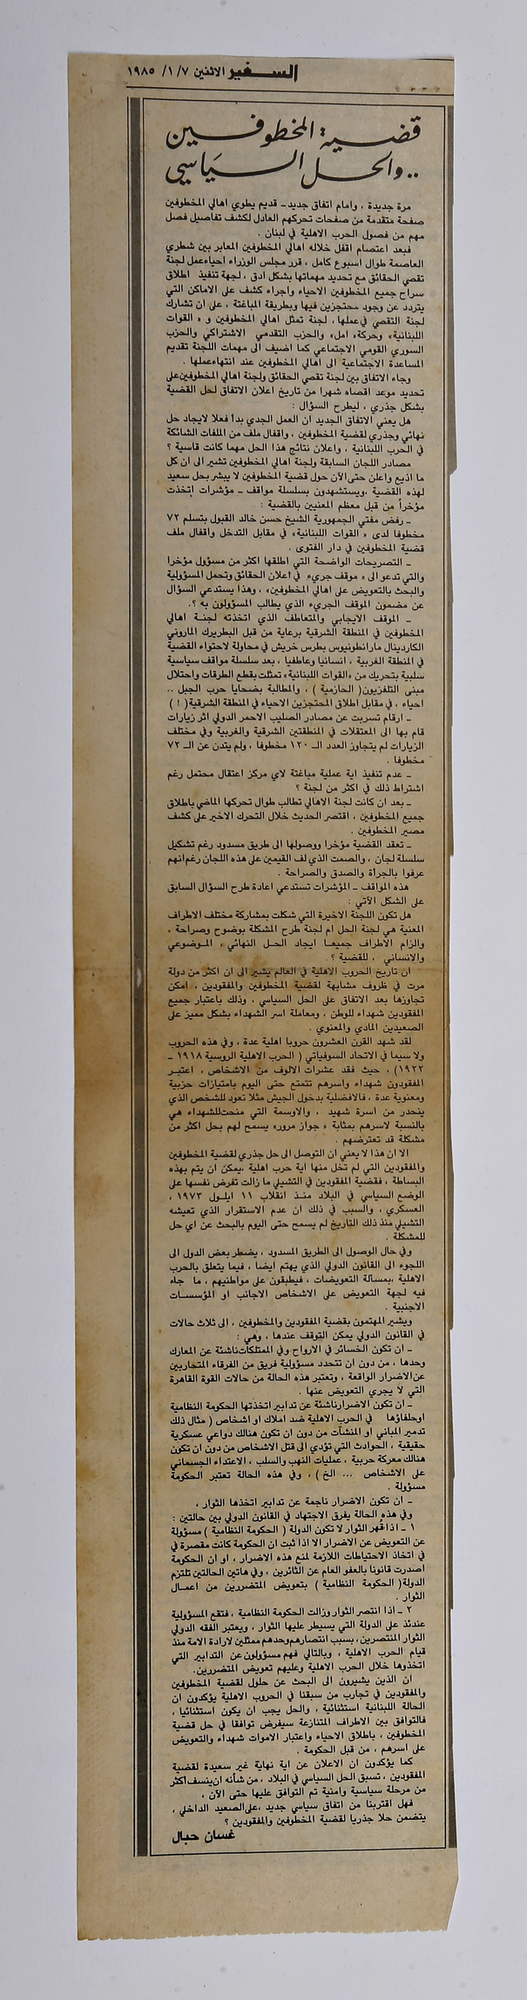 السفير الاثنين ٧/ ١/ ١٩٨٥
قضية المخطوفين
.. والحل السياسي
مرة جديدة ، وامام اتفاق جديد - قديم يطوي اهالي المخطوفين
صفحة متقدمة من صفحات تحركهم العادل لكشف تفاصيل فصل
مهم من فصول الحرب الاهلية في لبنان .
فبعد اعتصام اقفل خلاله اهالي المخطوفين المعابر بين شطري
العاصمة طوال اسبوع كامل ، قرر مجلس الوزراء احياء عمل لجنة
تقصي الحقائق مع تحديد مهماتها بشكل ادق ، لجهة تنفيذ اطلاق
سراح جميع المخطوفين الاحياء واجراء كشف على الاماكن التي
يتردد عن وجود محتجزين فيها وبطريقة المباغتة ، على ان تشارك
لجنة التقصي في عملها ، لجنة تمثل اهالي المخطوفين و « القوات
اللبنانية» وحركة« امل» والحزب التقدمي الاشتراكي والحزب
السوري القومي الاجتماعي كما اضيف الى مهمات اللجنة تقديم
المساعدة الاجتماعية الى اهالي المخطوفين عند انتهاء عملها .
وجاء الاتفاق بين لجنة تقصي الحقائق ولجنة اهالي المخطوفين على
تحديد موعد اقصاه شهرا من تاريخ اعلان الاتفاق لحل القضية
بشكل جذري ، ليطرح السؤال :
هل يعني الاتفاق الجديد ان العمل الجدي بدأ فعلا لايجاد حل
نهائي وجذري لقضية المخطوفين ، واقفال ملف من الملفات الشائكة
في الحرب اللبنانية ، واعلان نتائج هذا الحل مهما كانت قاسية ؟
مصادر اللجان السابقة ولجنة اهالي المخطوفين تشير الى ان كل
ما اذيع واعلن حتى الآن حول قضية المخطوفين لا يبشر بحل سعيد
لهذه القضية ،ويستشهدون بسلسلة مواقف - مؤشرات اتخذت
مؤخراً من قبل معظم المعنيين بالقضية :
- رفض مفتي الجمهورية الشيخ حسن خالد القبول بتسلم ٧٢
مخطوفا لدى « القوات اللبنانية» في مقابل التدخل واقفال ملف
قضية المخطوفين في دار الفتوى .
- التصريحات الواضحة التي اطلقها اكثر من مسؤول مؤخرا
والتي تدعو الى « موقف جريء » في اعلان الحقائق وتحمل المسؤولية
والبحث بالتعويض على اهالي المخطوفين» ، وهذا يستدعي السؤال
عن مضمون الموقف الجريء الذي يطالب المسؤولون به ؟.
- الموقف الايجابي والمتعاطف الذي اتخذته لجنة اهالي
المخطوفين في المنطقة الشرقية برعاية من قبل البطريرك الماروني
الكاردينال مار انطونيوس بطرس خريش في محاولة لاحتواء القضية
في المنطقة الغربية ، انسانيا وعاطفيا ، بعد سلسلة مواقف سياسية
سلبية بتحريك من «القوات اللبنانية» تمثلت بقطع الطرقات واحتلال
مبنى التلفزيون( الحازمية ) ، والمطالبة بضحايا حرب الجبل ..
احياء ، في مقابل اطلاق المحتجزين الاحياء في المنطقة الشرقية( ! )
- ارقام تسربت عن مصادر الصليب الاحمر الدولي اثر زيارات
قام بها الى المعتقلات في المنطقتين الشرقية والغربية وفي مختلف
الزيارات لم يتجاوز العدد الـ ١٢٠ مخطوفا ، ولم يتدن عن الـ ٧٢
مخطوفا .
- عدم تنفيذ اية عملية مباغتة لاي مركز اعتقال محتمل رغم
اشتراط ذلك في اكثر من لجنة ؟
- بعد ان كانت لجنة الاهالي تطالب طوال تحركها الماضي باطلاق
جميع المخطوفين ، اقتصر الحديث خلال التحرك الاخير على كشف
مصير المخطوفين .
- تعقد القضية مؤخرا ووصولها الى طريق مسدود رغم تشكيل
سلسلة لجان ، والصمت الذي لف القيمين على هذه اللجان رغم انهم
عرفوا بالجرأة والصدق والصراحة .
هذه المواقف - المؤشرات تستدعي اعادة طرح السؤال السابق
على الشكل الآتي :
هل تكون اللجنة الاخيرة التي شكلت بمشاركة مختلف الاطراف
المعنية هي لجنة الحل ام لجنة طرح المشكلة بوضوح وصراحة ،
والزام الاطراف جميعا ايجاد الحل النهائي ، الموضوعي
والانساني ، للقضية ؟ .
ان تاريخ الحروب الاهلية في العالم يشير الى ان اكثر من دولة
مرت في ظروف مشابهة لقضية المخطوفين والمفقودين ، امكن
تجاوزها بعد الاتفاق على الحل السياسي ، وذلك باعتبار جميع
المفقودين شهداء للوطن ، ومعاملة اسر الشهداء بشكل مميز على
الصعيدين المادي والمعنوي .
لقد شهد القرن العشرون حروبا اهلية عدة ، وفي هذه الحروب
ولا سيما في الاتحاد السوفياتي ( الحرب الاهلية الروسية ١٩١٨ -
١٩٢٢ ) ، حيث فقد عشرات الالوف من الاشخاص ، اعتبر
المفقودون شهداء واسرهم تتمتع حتى اليوم بامتيازات حزبية
ومعنوية عدة ، فالافضلية بدخول الجيش مثلا تعود للشخص الذي
ينحدر من اسرة شهيد ، والاوسمة التي منحت للشهداء هي
بالنسبة لاسرهم بمثابة « جواز مرور» يسمح لهم بحل اكثر من
مشكلة قد تعترضهم .
الا ان هذا لا يعني ان التوصل الى حل جذري لقضية المخطوفين
والمفقودين التي لم تخل منها اية حرب اهلية ،يمكن ان يتم بهذه
البساطة ، فقضية المفقودين في التشيلي ما زالت تفرض نفسها على
الوضع السياسي في البلاد منذ انقلاب ١١ ايلول ١٩٧٣ ،
العسكري ، والسبب في ذلك ان عدم الاستقرار الذي تعيشه
التشيلي منذ ذلك التاريخ لم يسمح حتى اليوم بالبحث عن اي حل
للمشكلة .
وفي حال الوصول الى الطريق المسدود ، يضطر بعض الدول الى
اللجوء الى القانون الدولي الذي يهتم ايضا ، فيما يتعلق بالحرب
الاهلية ،بمسالة التعويضات ، فيطبقون على مواطنيهم ، ما جاء
فيه لجهة التعويض على الاشخاص الاجانب او المؤسسات
الاجنبية .
ويشير المهتمون بقضية المفقودين والمخطوفين ، الى ثلاث حالات
في القانون الدولي يمكن التوقف عندها ، وهي :
- ان تكون الخسائر في الارواح وفي الممتلكات ناشئة عن المعارك
وحدها ، من دون ان تتحدد مسؤولية فريق من الفرقاء المتحاربين
عن الاضرار الواقعة ، وتعتبر هذه الحالة من حالات القوة القاهرة
التي لا يجري التعويض عنها .
- ان تكون الاضرار ناشئة عن تدابير اتخذتها الحكومة النظامية
او حلفاؤها في الحرب الاهلية ضد املاك او اشخاص ( مثال ذلك
تدمير المباني او المنشآت من دون ان تكون هنالك دواعي عسكرية
حقيقية ، الحوادث التي تؤدي الى قتل الاشخاص من دون ان تكون
هنالك معركة حربية ، عمليات النهب والسلب ، الاعتداء الجسماني
على الاشخاص ... الخ ) ، وفي هذه الحالة تعتبر الحكومة
مسؤولة .
- ان تكون الاضرار ناجمة عن تدابير اتخذها الثوار ،
وفي هذه الحالة يفرق الاجتهاد في القانون الدولي بين حالتين :
١ - اذا قهر الثوار لا تكون الدولة ( الحكومة النظامية ) مسؤولة
عن التعويض عن الاضرار الا اذا ثبت ان الحكومة كانت مقصرة في
في اتخاذ الاحتياطات اللازمة لمنع هذه الاضرار ، او ان الحكومة
اصدرت قانونا بالعفو العام عن الثائرين ، وفي هاتين الحالتين تلتزم
الدولة( الحكومة النظامية ) بتعويض المتضررين من اعمال
الثوار .
٢ - اذا انتصر الثوار وزالت الحكومة النظامية ، فتقع المسؤولية
عندئذ على الدولة التي يسيطر عليها الثوار ، ويعتبر الفقه الدولي
الثوار المنتصرين ، بسبب انتصارهم وحدهم ممثلين لارادة الامة منذ
قيام الحرب الاهلية ، وبالتالي فهم مسؤولون عن التدابير التي
اتخذوها خلال الحرب الاهلية وعليهم تعويض المتضررين .
ان الذين يشيرون الى البحث عن حلول لقضية المخطوفين
والمفقودين في تجارب من سبقنا في الحروب الاهلية يؤكدون ان
الحالة اللبنانية استثنائية ، والحل يجب ان يكون استثنائيا ،
فالتوافق بين الاطراف المتنازعة سيفرض توافقا في حل قضية
المخطوفين ، باطلاق الاحياء واعتبار الاموات شهداء والتعويض
على اسرهم ، من قبل الحكومة .
كما يؤكدون ان الاعلان عن اية نهاية غير سعيدة لقضية
المفقودين ، تسبق الحل السياسي في البلاد ، من شأنه ان ينسف اكثر
من مرحلة سياسية وامنية تم التوافق عليها حتى الآن .
فهل اقتربنا من اتفاق سياسي جديد ،على الصعيد الداخلي ،
يتضمن حلا جذريا لقضية المخطوفين والمفقودين ؟
غسان حبال